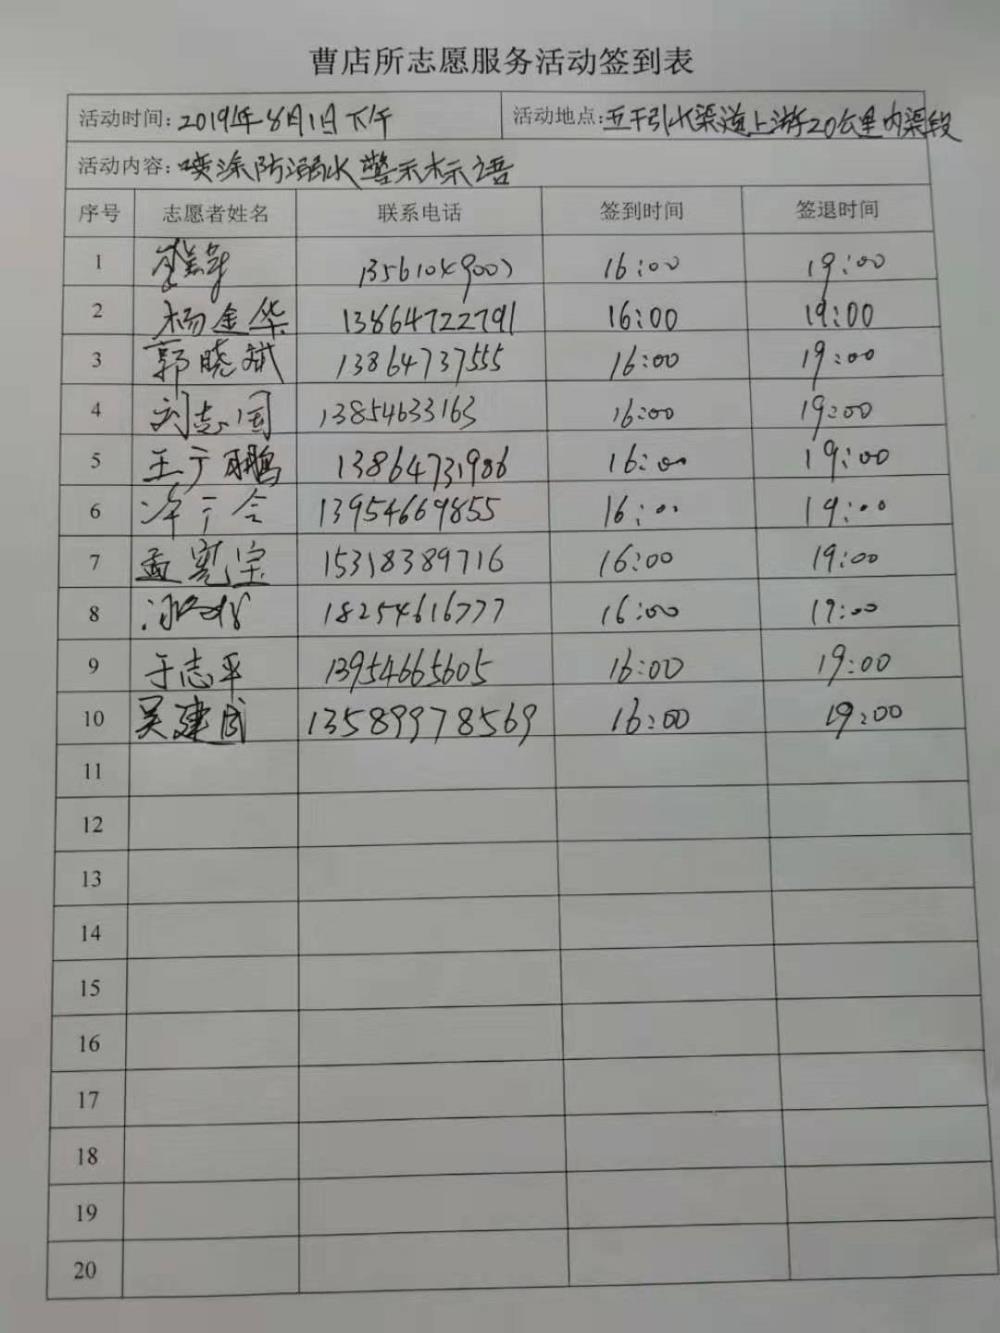 曹店所志愿服务活动签到表
活动时间: 2019年8月1日下午 活动地点: 五干引水渠道上游20公里内渠段
活动内容: 喷涂防溺水警示标语
序号 志愿者姓名 联系电话 签到时间 签退时间
1 16:00 19:00
2 杨金华 13864722791 16:00 19:00
3 郭晓斌 13864737555 16:00 19:00
4 刘志国 13854633163 16:00 19:00
5 王于鹏 13864731986 16:00 19:00
6 13954669855 16:00 19:00
7 孟宪宝 15318389716 16:00 19:00
8 18254616777 16:00 19:00
9 于志平 13954665605 16:00 19:00
10 吴建国 13589978569 16:00 19:00
11
12
13
14
15
16
17
18
19
20